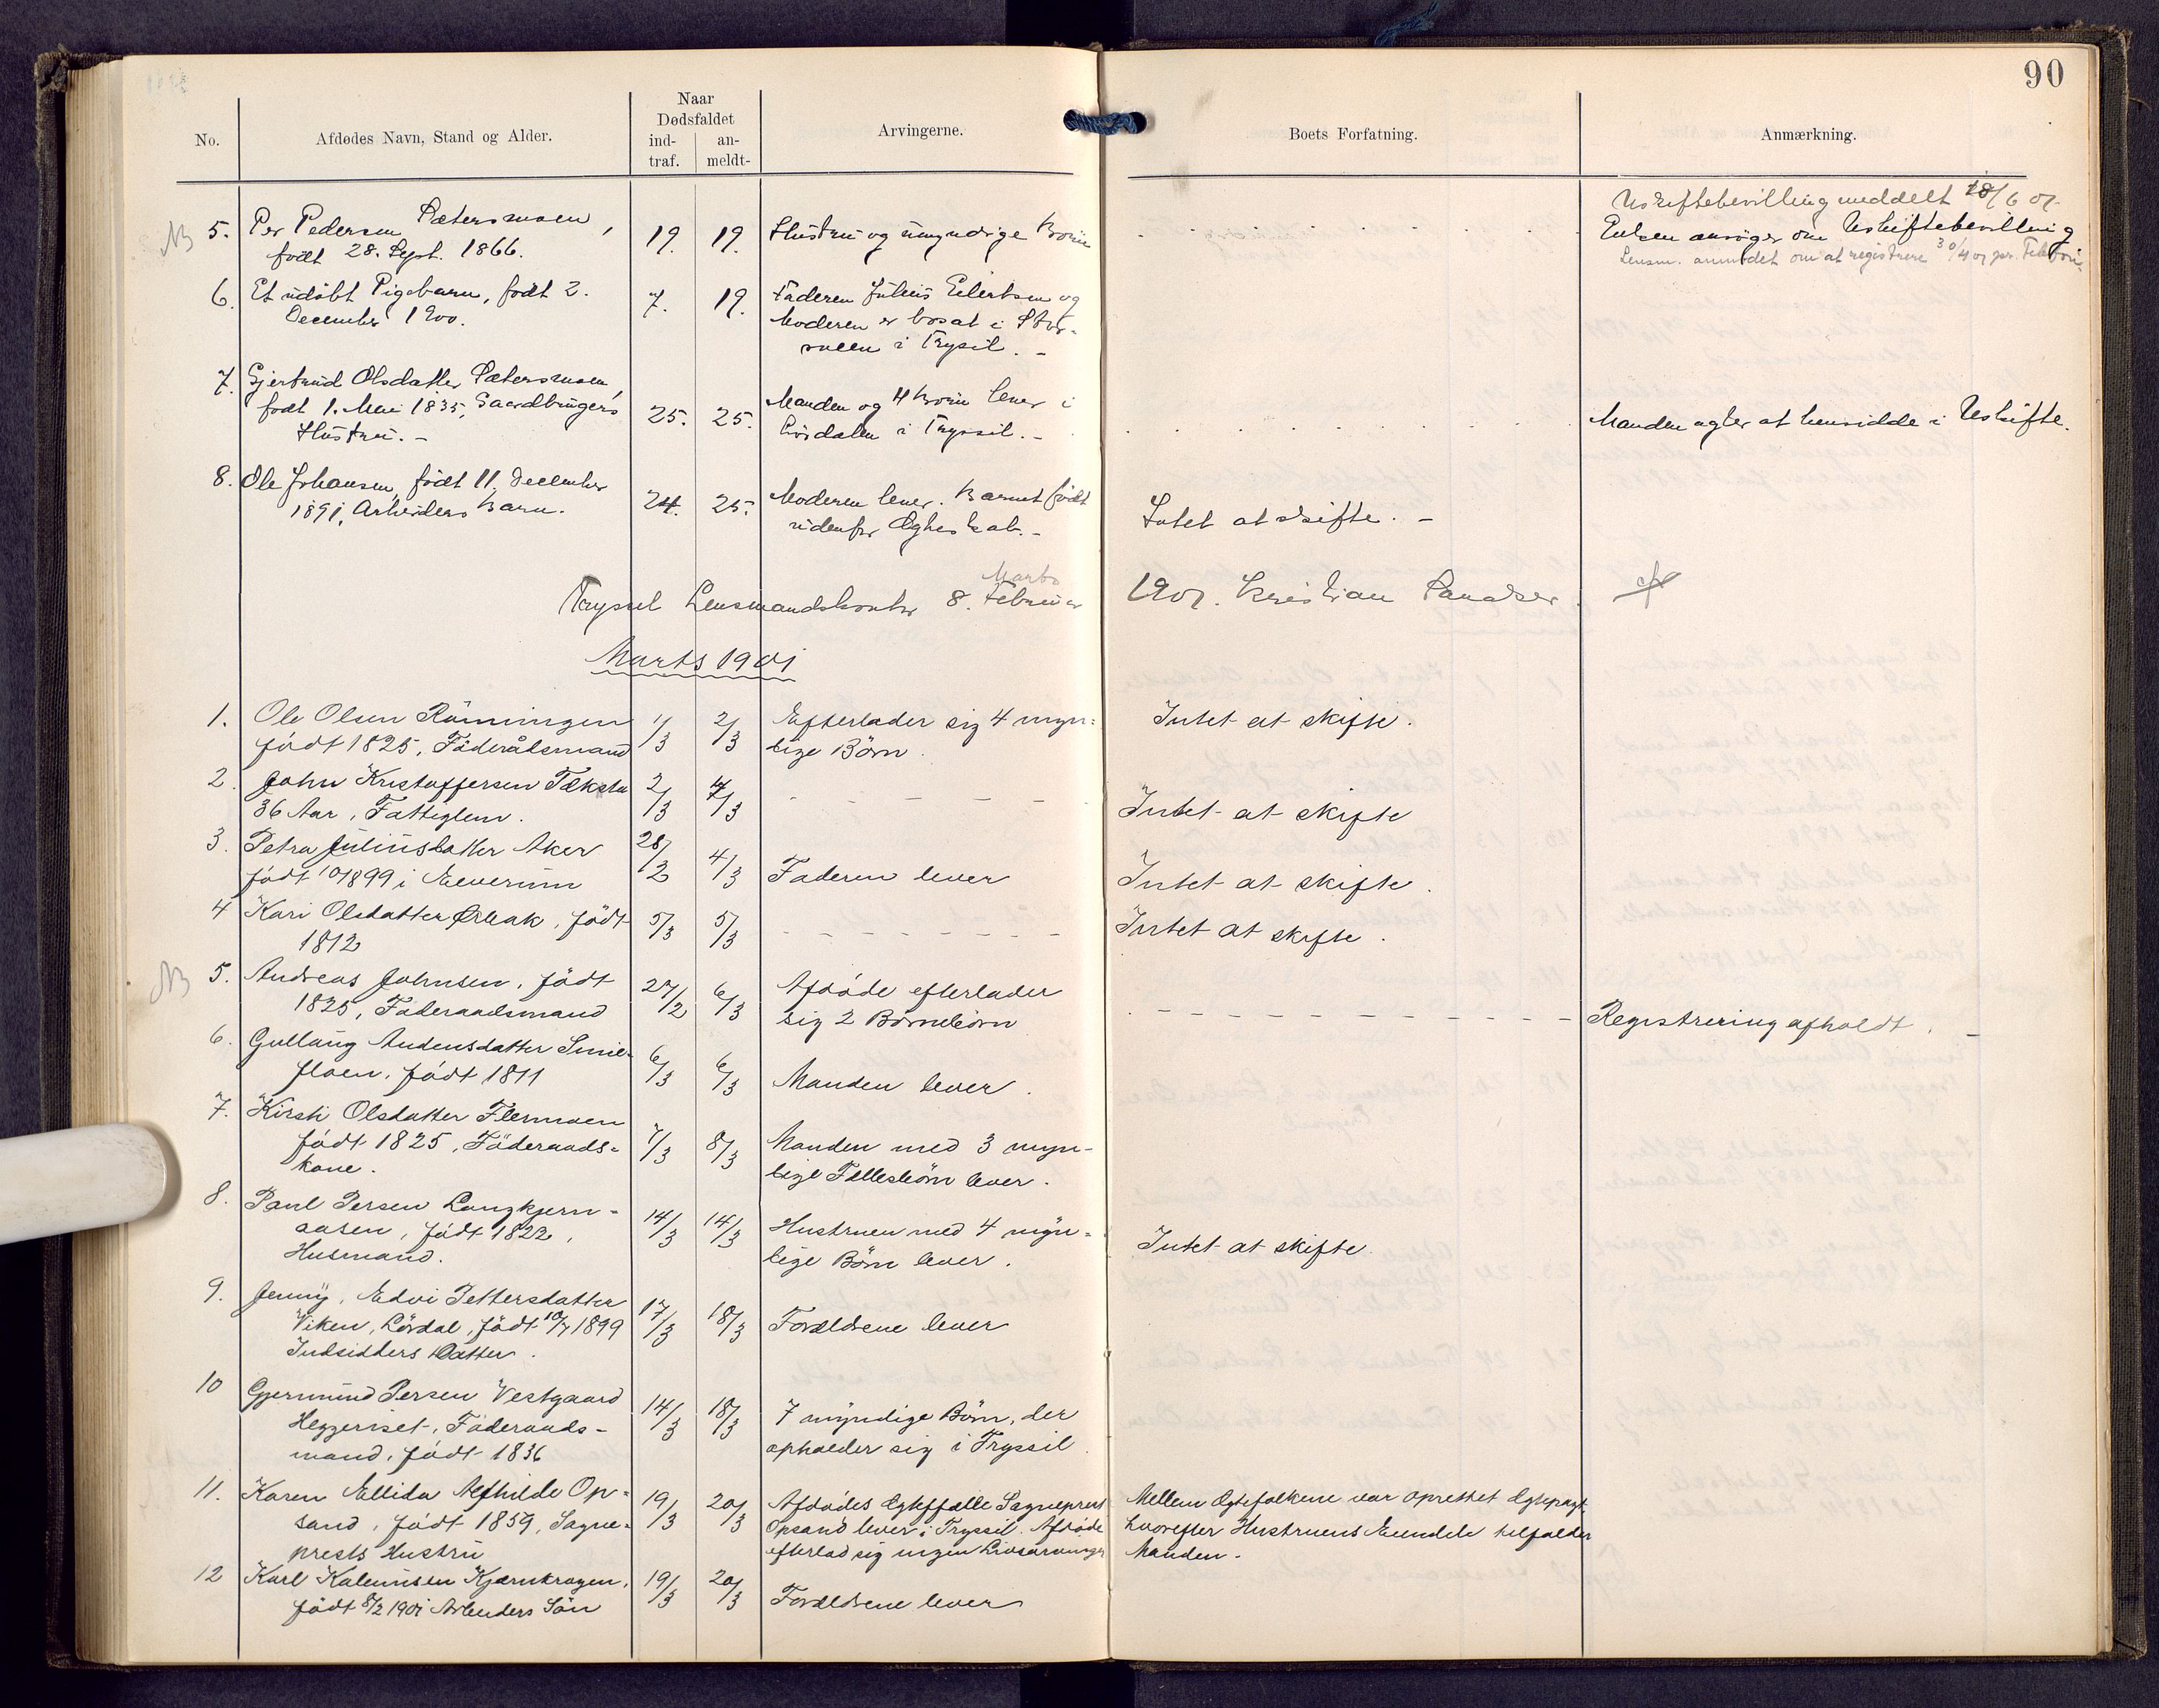 90
No.
Afdødes Navn, Stand og Alder.
Naar
Dødsfaldet
ind-
traf.
an-
meldt-
Arvingerne.
Boets Forfatning.
Anmærkning.
NB 5. Per Pedersen Sætersmoen,
født 28. Sept. 1866.
19. 19. Hustru og umyndige Børn
Uskiftebevilling meddelt 18/6 01
Enken ansøger om Uskiftebevilling
Lensm. anmodet om at registrere 30/4 01 pr. Telefon.
6. Et udøbt Pigebarn, født 2.
December 1900.
7. 19. Faderen Julius Eilertsen og
Moderen er bosat i Stor-
moen i Trysil. -
7. Gjertrud Olsdatter Sætersmoen,
født 1. Mai 1835, Gaardbrugers
Hustru. -
25. 25. Manden og 4 Børn lever i
Lørdalen i Tryssil. -
Manden agter at hensidde i Uskifte.
8. Ole Johansen, født 11. December
1891, Arbeiders Barn.
24. 25. Moderen lever. Barnet født
udenfor Ægteskab. -
Intet at skifte. -
Marts
Tryssil Lensmandskontor 8. Februar 1901. Kristian
Marts 1901
1. Ole Olsen Rönningen
födt 1825, Föderådsmand
1/3 2/3 Efterlader sig 4 myn-
dige Börn.
Intet at skifte.
2. John Kristoffersen
36 Aar, Fattiglem.
2/3 4/3
Intet at skifte
3. Petra Juliusdatter Aker
födt 10/1899 i Elverum
28/2 4/3 Faderen lever
Intet at skifte.
4 Kari Olsdatter Ørbak, födt
1812
5/3 5/3
Intet at skifte.
NB 5. Andreas Johnsen, födt
1825, Föderaadsmand
27/2 6/3 Afdöde efterlader
sig 2 Börnebörn
Registrering afholdt. -
6. Gullaug Audensdatter
floen, födt 1811
6/3 6/3 Manden lever.
7. Kirsti Olsdatter Flermoen
födt 1825, Föderaads-
kone.
7/3 8/3 Manden med 3 myn-
dige Fællesbörn lever.
8. Paul Persen Langkjern-
aasen, födt 1822,
Husmand.
14/3 14/3 Hustruen med 4 myn-
dige Börn lever.
Intet at skifte.
9. Jenny, Edvi Pettersdatter
Viken, Lördal, födt 10/7 1899
Indsidders Datter.
17/3 18/3 Forældrene lever
10 Gjermund Persen Vestgaard
Heggeriset, Föderaads-
mand, födt 1836
14/3 18/3 7 myndige Börn, der
opholder sig i Tryssil.
11. Karen Ellida Alfhilde Op-
sand, födt 1859, Sogne-
prests Hustru
19/3 20/3 Afdödes Ægtefælle Sogneprest
Opsand lever i Tryssil. Afdöde
efterlod sig ingen Livsarvinger
Mellem Ægtefolkene var oprettet Ægtepagt,
hvorefter Hustruens Eiendele tilfalder
Manden. -
12 Karl Kalenusen Kjærnkrogen,
födt 8/2 1901 Arbeiders Sön
19/3 20/3 Forældrene lever